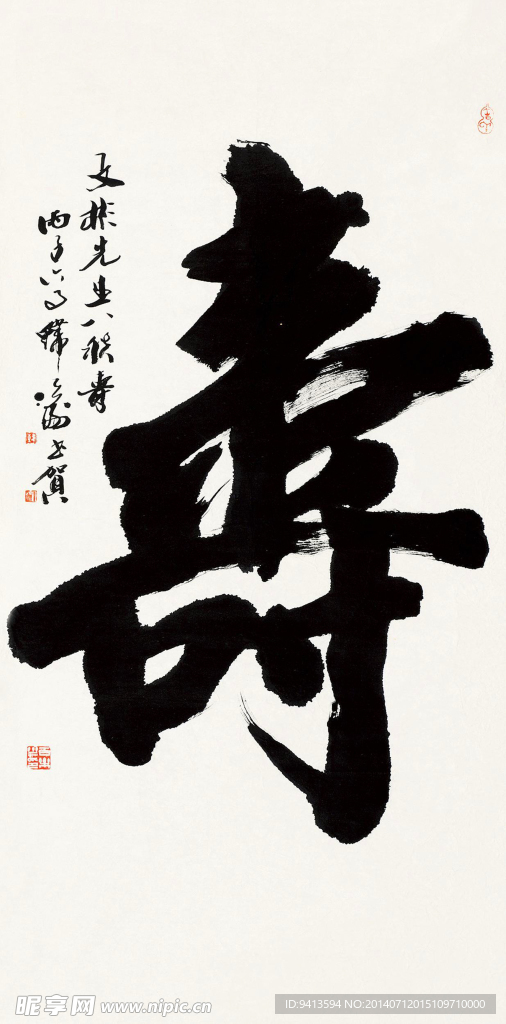 壽
文彬先生八秩壽
丙子六月 書賀
昵享网 www.nipic.cn
ID:9413594 NO:20140712015109710000